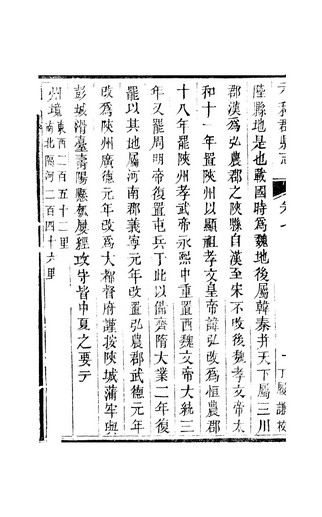 元和郡縣志
卷七
丁駿謹校
陸縣地是也戰國時爲魏地後屬韓秦并天下屬三川
郡漢爲弘農郡之陝縣自漢至宋不改後魏孝文帝太
和十一年置陝州以顯祖孝文皇帝諱弘改爲恒農郡
十八年罷陝州孝武帝永熙中重置西魏文帝大統三
年又罷周明帝復置屯兵于此以備齊隋大業二年復
罷以其地屬河南郡義寧元年改置弘農郡武德元年
改爲陝州廣德元年改爲大都督府謹按陝城蒲牢與
彭城滑臺壽陽懸瓠屢經攻守皆中夏之要云
州境
東西二百五十二里
南北隔河二百四十六里